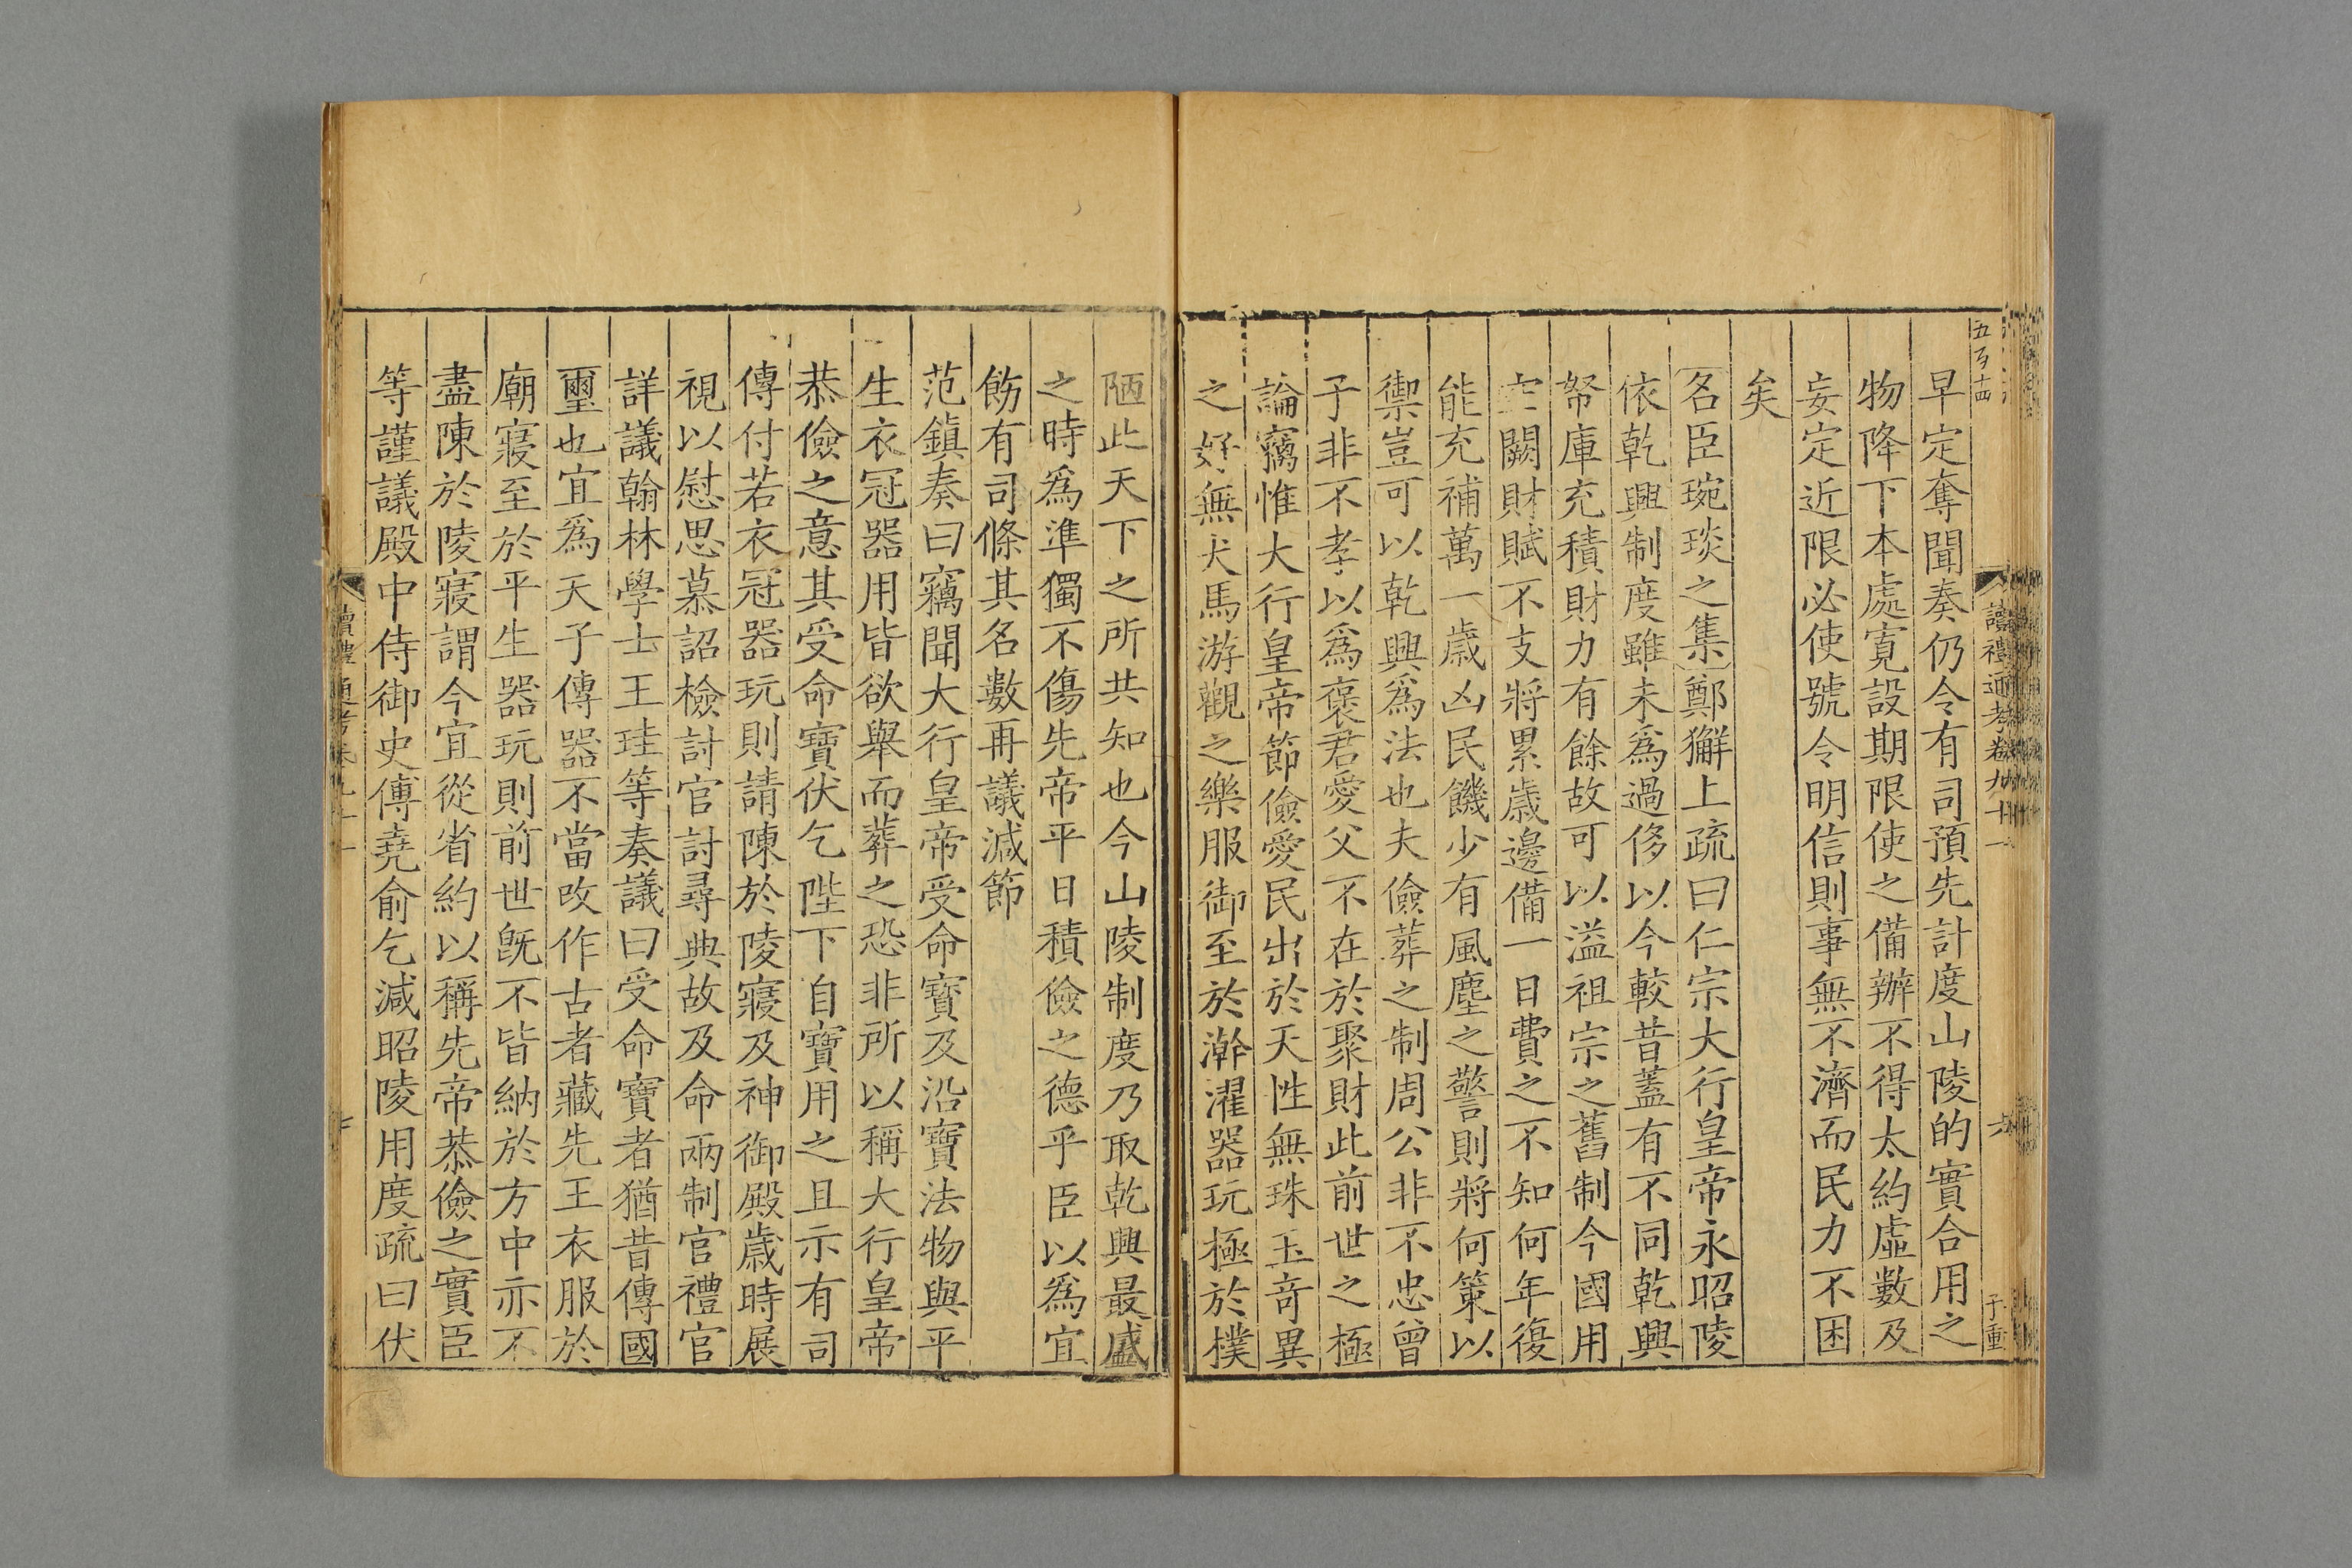 五百十四
讀禮通考卷九十一
六
子重
早定奪聞奏仍令有司預先計度山陵的實合用之
物降下本處寛設期限使之備辦不得太約虛數及
妄定近限必使號令明信則事無不濟而民力不困
矣
名臣琬琰之集鄭獬上疏曰仁宗大行皇帝永昭陵
依乾興制度雖未爲過侈以今較昔蓋有不同乾興
帑庫充積財力有餘故可以溢祖宗之舊制今國用
空闕財賦不支將累歲邊備一日費之不知何年復
能充補萬一歲凶民饑少有風塵之警則將何策以
禦豈可以乾興爲法也夫儉葬之制周公非不忠曾
子非不孝以爲褒君愛父不在於聚財此前世之極
論竊惟大行皇帝節儉愛民出於天性無珠玉竒異
之好無犬馬游觀之樂服御至於澣濯器玩極於樸
陋此天下之所共知也今山陵制度乃取乾興最盛
之時爲準獨不傷先帝平日積儉之德乎臣以爲宜
飭有司條其名數再議減節
范鎮奏曰竊聞大行皇帝受命寶及沿寶法物與平
生衣冠器用皆欲舉而葬之恐非所以稱大行皇帝
恭儉之意其受命寶伏乞陛下自寶用之且示有司
傳付若衣冠器玩則請陳於陵寢及神御殿歲時展
視以慰思慕詔檢討官討尋典故及命兩制官禮官
詳議翰林學士王珪等奏議曰受命寶者猶昔傳國
璽也宜爲天子傳器不當改作古者藏先王衣服於
廟寢至於平生器玩則前世旣不皆納於方中亦不
盡陳於陵寢謂今宜從省約以稱先帝恭儉之實臣
等謹議殿中侍御史傅堯俞乞減昭陵用度疏曰伏
讀禮通考卷九十一